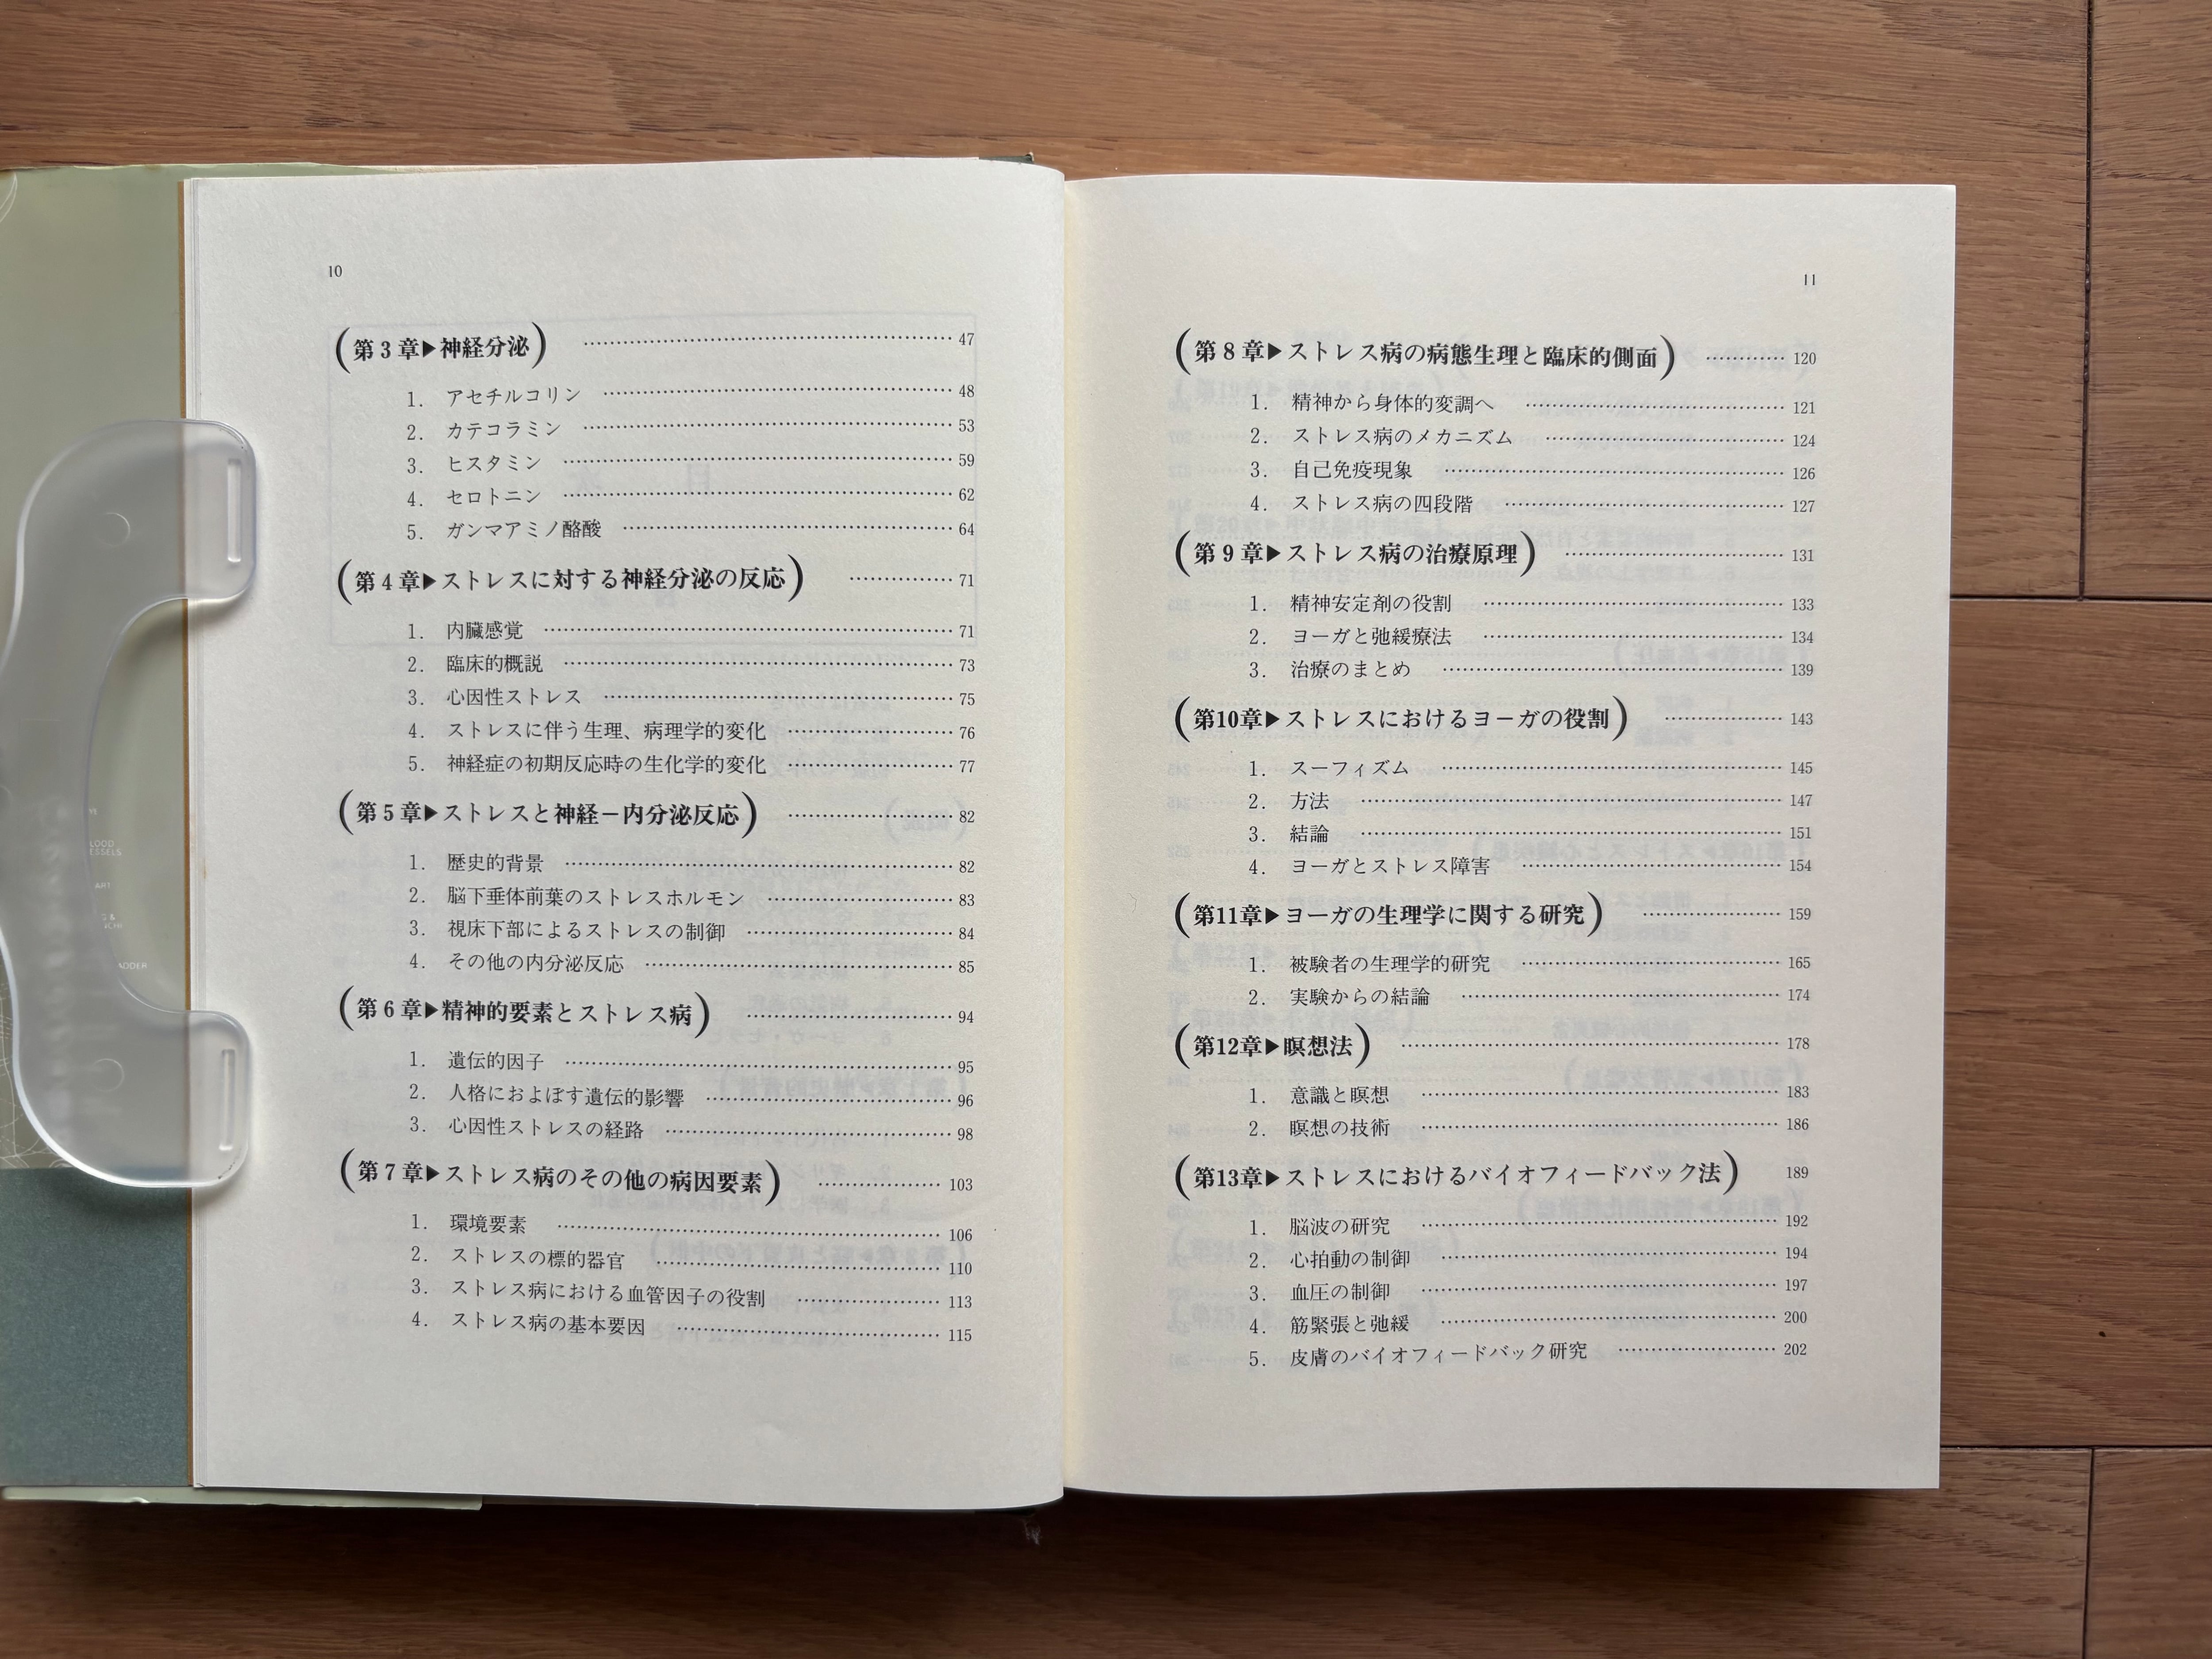 10
第3章▶神経分泌 …… 47
1. アセチルコリン …… 48
2. カテコラミン …… 53
3. ヒスタミン …… 59
4. セロトニン …… 62
5. ガンマアミノ酪酸 …… 64
第4章▶ストレスに対する神経分泌の反応 …… 71
1. 内臓感覚 …… 71
2. 臨床的概説 …… 73
3. 心因性ストレス …… 75
4. ストレスに伴う生理、病理学的変化 …… 76
5. 神経症の初期反応時の生化学的変化 …… 77
第5章▶ストレスと神経−内分泌反応 …… 82
1. 歴史的背景 …… 82
2. 脳下垂体前葉のストレスホルモン …… 83
3. 視床下部によるストレスの制御 …… 84
4. その他の内分泌反応 …… 85
第6章▶精神的要素とストレス病 …… 94
1. 遺伝的因子 …… 95
2. 人格におよぼす遺伝的影響 …… 96
3. 心因性ストレスの経路 …… 98
第7章▶ストレス病のその他の病因要素 …… 103
1. 環境要素 …… 106
2. ストレスの標的器官 …… 110
3. ストレス病における血管因子の役割 …… 113
4. ストレス病の基本要因 …… 115
11
第8章▶ストレス病の病態生理と臨床的側面 …… 120
1. 精神から身体的変調へ …… 121
2. ストレス病のメカニズム …… 124
3. 自己免疫現象 …… 126
4. ストレス病の四段階 …… 127
第9章▶ストレス病の治療原理 …… 131
1. 精神安定剤の役割 …… 133
2. ヨーガと弛緩療法 …… 134
3. 治療のまとめ …… 139
第10章▶ストレスにおけるヨーガの役割 …… 143
1. スーフィズム …… 145
2. 方法 …… 147
3. 結論 …… 151
4. ヨーガとストレス障害 …… 154
第11章▶ヨーガの生理学に関する研究 …… 159
1. 被験者の生理学的研究 …… 165
2. 実験からの結論 …… 174
第12章▶瞑想法 …… 178
1. 意識と瞑想 …… 183
2. 瞑想の技術 …… 186
第13章▶ストレスにおけるバイオフィードバック法 189
1. 脳波の研究 …… 192
2. 心拍動の制御 …… 194
3. 血圧の制御 …… 197
4. 筋緊張と弛緩 …… 200
5. 皮膚のバイオフィードバック研究 …… 202